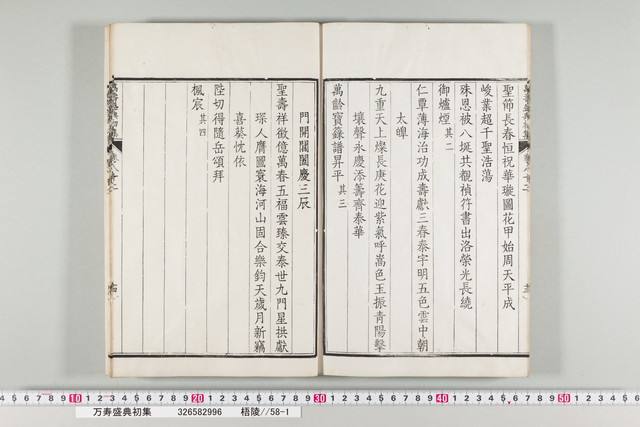 聖節長春恒祝華璇圖花甲始周天平成
峻業超千聖浩蕩
殊恩被八埏共覩禎符書出洛榮光長繞
御爐煙其二
仁覃薄海治功成壽獻三春泰宇明五色雲中朝
太皥
九重天上燦長庚花迎紫氣呼嵩色玉振青陽擊
壤聲永慶添籌齊泰華
萬齡寶籙譜昇平其三
門開閶闔慶三辰
聖壽祥徵億萬春五福雲臻交泰世九門星拱獻
琛人膺圖寰海河山固合樂鈞天歲月新竊
喜葵忱依
陛切得隨岳頌拜
楓宸其四
10 20 30 40 50
万寿盛典初集 326582996 梧陵//58-1